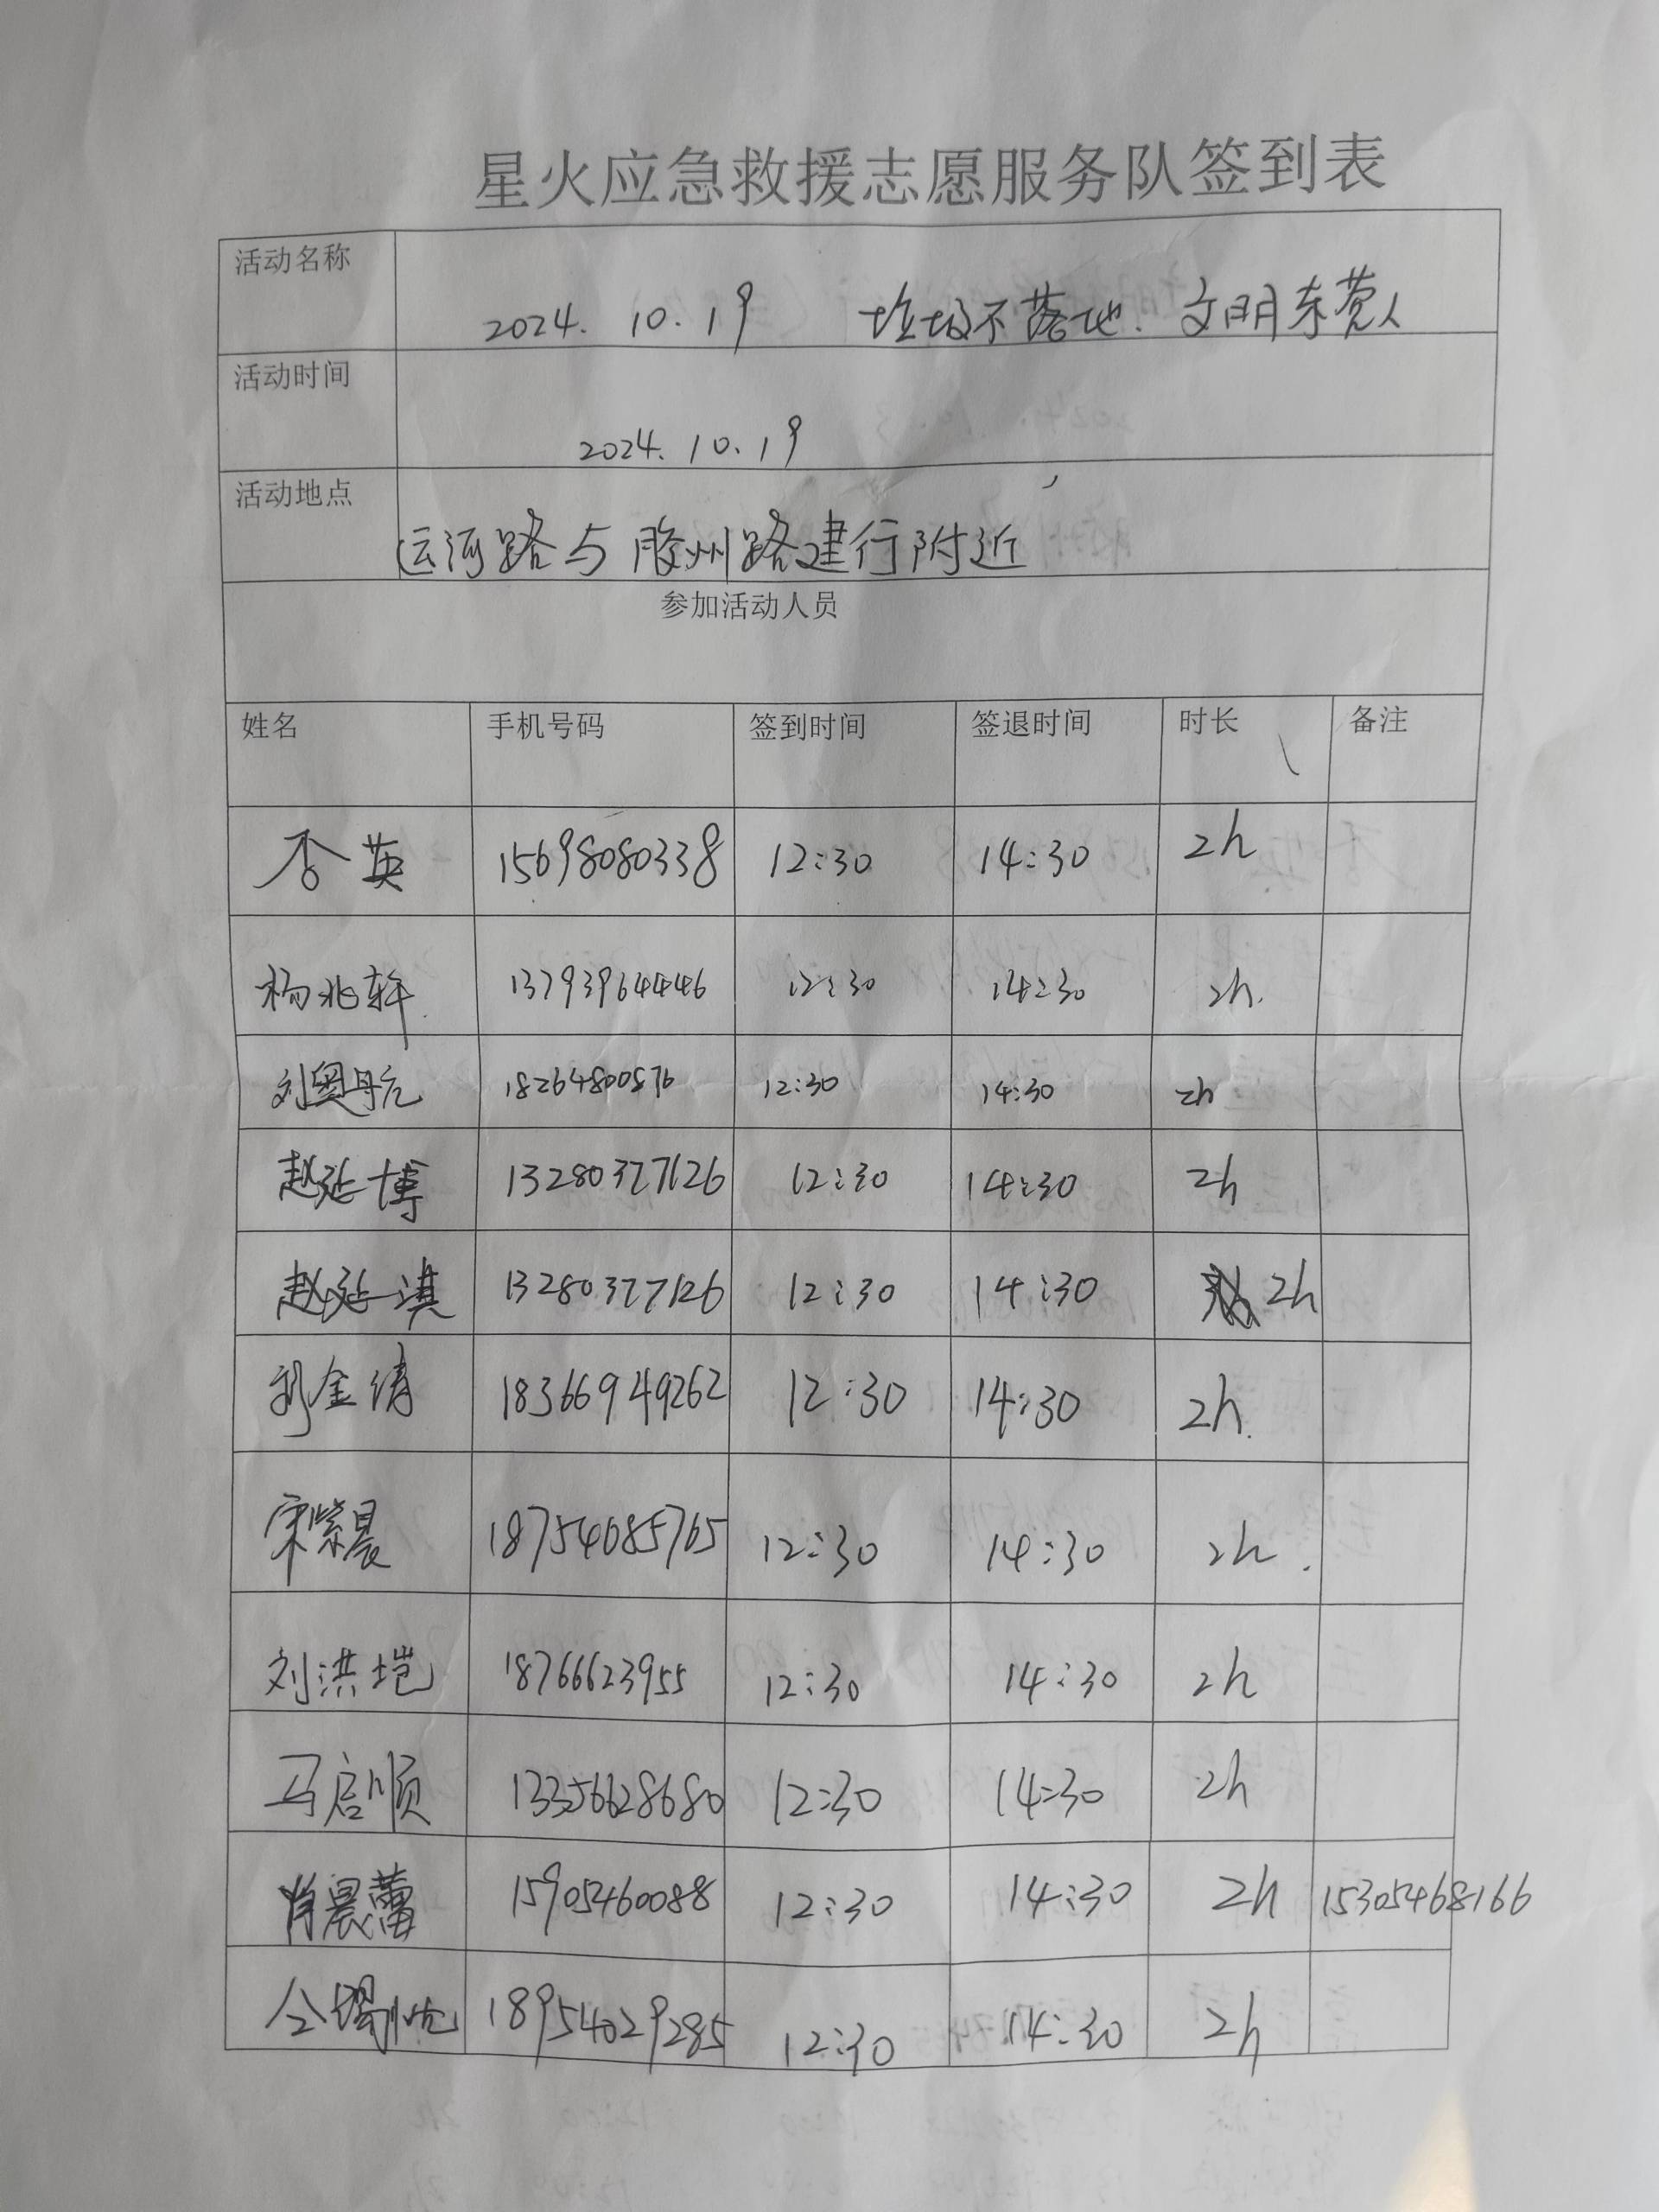 星火应急救援志愿服务队签到表
活动名称 2024.10.19 垃圾不落地.文明东营人
活动时间 2024.10.19
活动地点 运河路与胶州路建行附近
参加活动人员
姓名 手机号码 签到时间 签退时间 时长 备注
英 15698080338 12:30 14:30 2h
杨兆轩 13793964446 12:30 14:30 2h.
刘奥航 18264800876 12:30 14:30 2h
赵延博 13280377126 12:30 14:30 2h
赵延淇 13280377126 12:30 14:30 2h
金 18366949262 12:30 14:30 2h.
宋紫晨 18754685765 12:30 14:30 2h.
刘洪垲 18766623955 12:30 14:30 2h
马启顺 13356628680 12:30 14:30 2h
肖晨蕾 15905460088 12:30 14:30 2h 15305468166
18954029285 12:30 14:30 2h